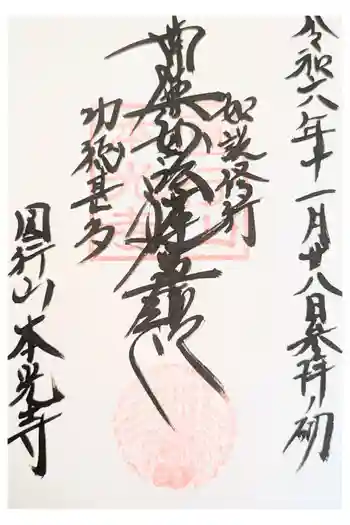 令和六年十一月廿八日参拝ノ砌
如説修行
南無妙法蓮華経
功徳甚多
圓行山本光寺